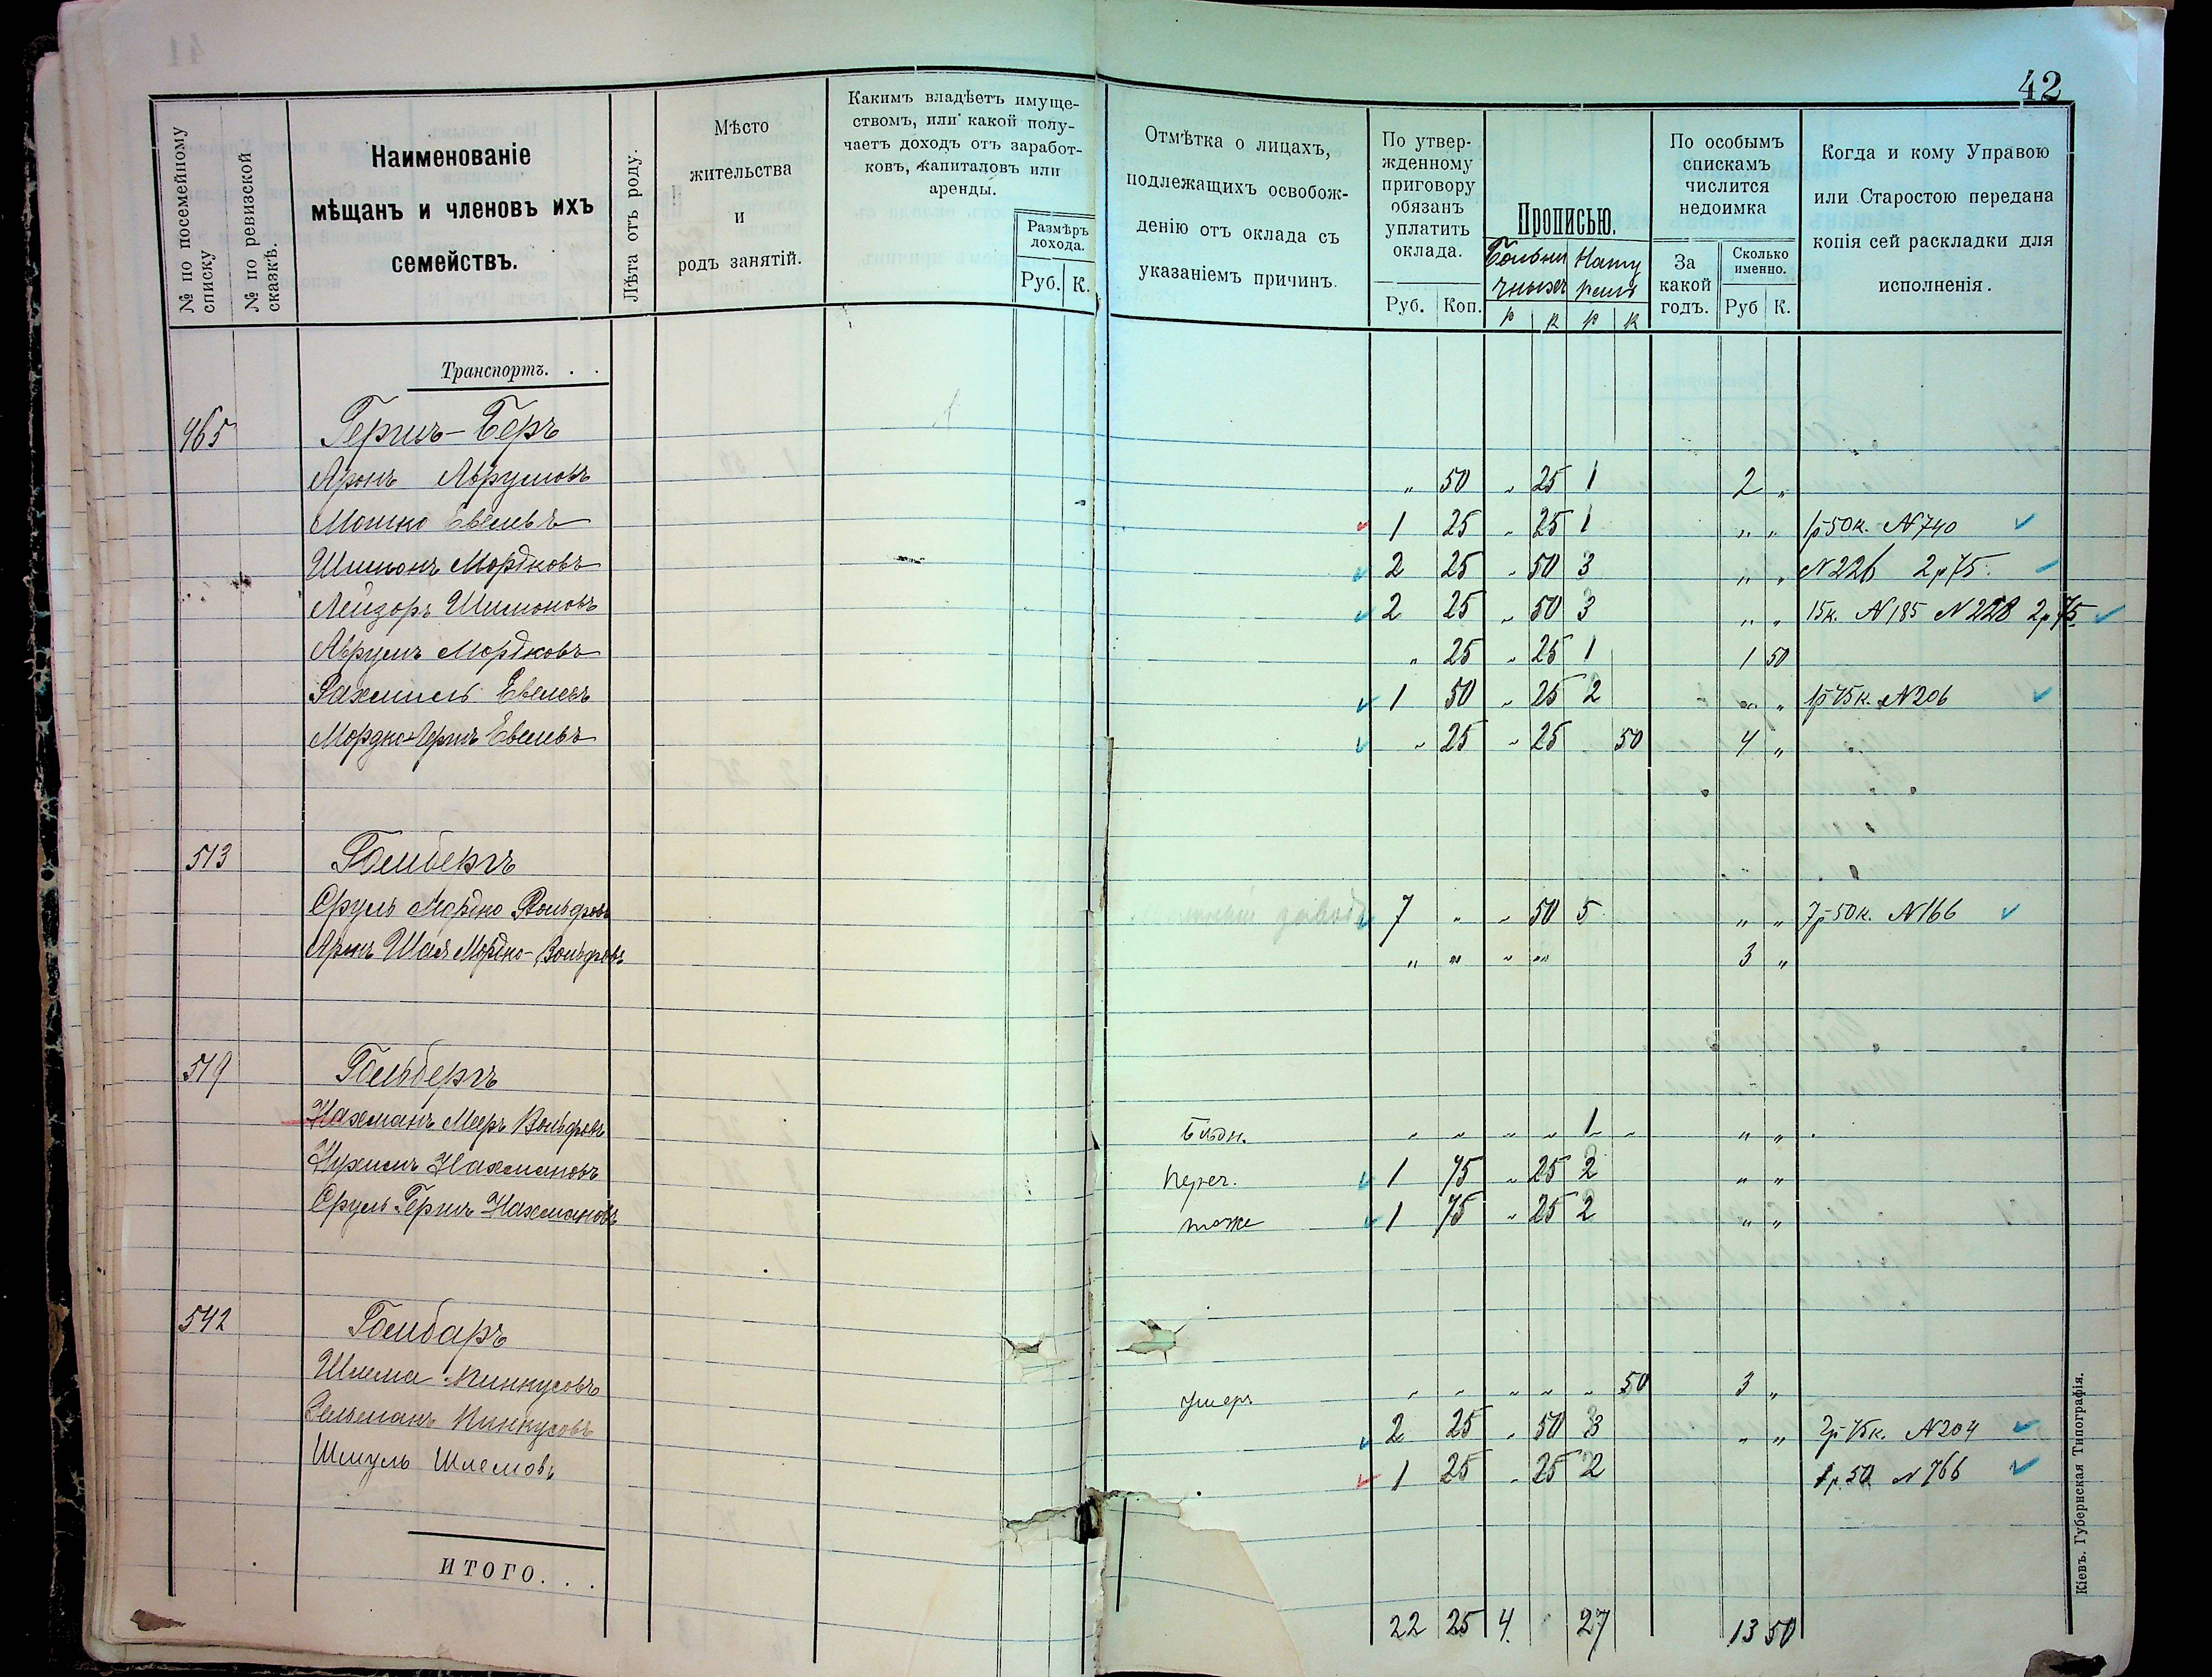 42
№ по посемейному списку
№ по ревизской сказкѣ.
Наименованіе
мѣщанъ и членовъ ихъ
семействъ.
Лѣта отъ роду.
Мѣсто
жительства
и
родъ занятій.
Какимъ владѣетъ имуще-
ствомъ, или какой полу-
чаетъ доходъ отъ заработ-
ковъ, капиталовъ или
аренды.
Размѣръ
дохода.
Руб. К.
Отмѣтка о лицахъ,
подлежащихъ освобож-
денію отъ оклада съ
указаніемъ причинъ.
По утвер-
жденному
приговору
обязанъ
уплатить
оклада.
Руб. Коп.
Прописью.
р к р к
По особымъ
спискамъ
числится
недоимка
За
какой
годъ.
Сколько
именно.
Руб К.
Когда и кому Управою
или Старостою передана
копія сей раскладки для
исполненія.
Транспортъ. . .
465 Гершъ-Беръ
Аронъ Аврумовъ " 50 " 25 1 2 "
Мошко Евелевъ 1 25 " 25 1 " " 1р 50к. N740
Шимонъ Мордковъ 2 25 " 50 3 " " N226 2р75
Лейзоръ Шимоновъ 2 25 " 50 3 " " 15к. N185 N228 2р75
Аврумъ Мордковъ " 25 " 25 1 1 50
Рахмиль Евелевъ 1 50 " 25 2 " " 1р 75к. N206
Мордко-Гершъ Евелевъ " 25 " 25 50 4 "
513 Гольбергъ
Сруль Мордко Вольфовъ 7 " " 50 5 " " 7р 50к. N166
Аронъ Шая Мордко-Вольфовъ " " " " 3 "
519 Гольбергъ
Нахманъ Мееръ Вольфовъ Бѣдн. " " " " 1 " " "
Нухимъ Нахмановъ Переч. 1 75 " 25 2 " "
Сруль Гершъ Нахмановъ тоже 1 75 " 25 2 " "
542 Гольбаръ
Шлема Пинкусовъ умеръ " " " " " 50 3 "
Зельманъ Пинкусовъ 2 25 " 50 3 " " 2р 75к. N204
Шмуль Шлемовъ 1 25 " 25 2 1р 50 N766
ИТОГО. . .
22 25 4. 27 13 50
Кіевъ. Губернская Типографія.